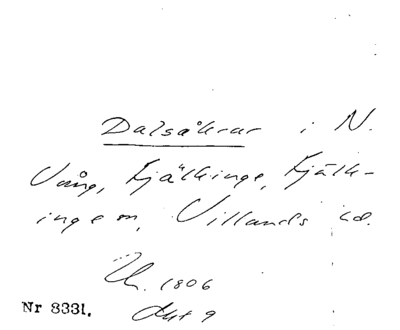 Dalsåkrar i N.
Vång, Fjälkinge, Fjälk-
inge sn, Villands hd.
Uh. 1806
Akt 9
Nr 3331.